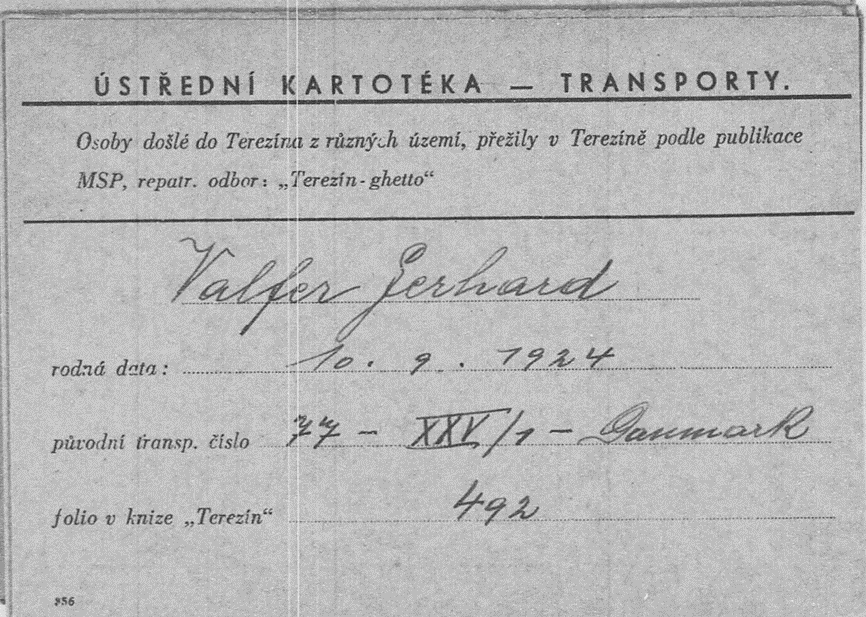 ÚSTŘEDNÍ KARTOTÉKA — TRANSPORTY.
Osoby došlé do Terezína z různých území, přežily v Terezíně podle publikace
MSP, repatr. odbor: „Terezín-ghetto“
Valfer Gerhard
rodná data: 10. 9. 1924
původní transp. číslo 77 – XXV/1 – Danmark
folio v knize „Terezín“ 492
956